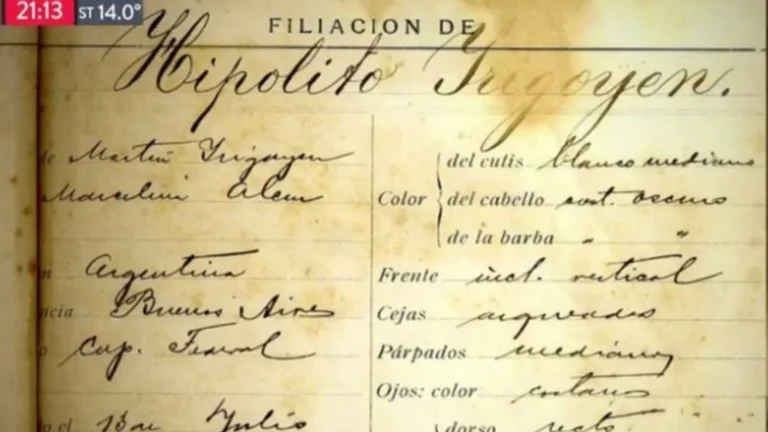 21:13 ST 14.0°
FILIACION DE
Hipolito Irigoyen.
de Martin Irigoyen
Marcelina Alem
n Argentina
ncia Buenos Aires
o Cap. Federal
o el 13 de Julio
Color
del cutis blanco mediano
del cabello cast. oscuro
de la barba " "
Frente incl. vertical
Cejas arqueadas
Párpados medianos
Ojos: color castaños
dorso recto